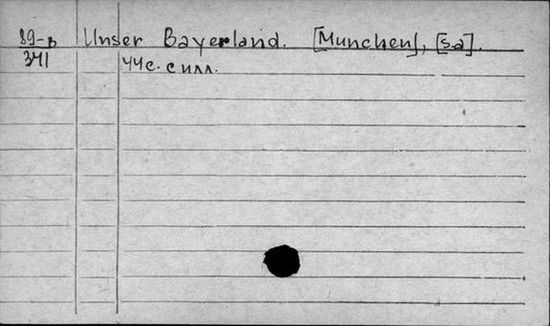 89-в Unser Bayerland. [Munchen], [s.a].
341 44 с. с илл.